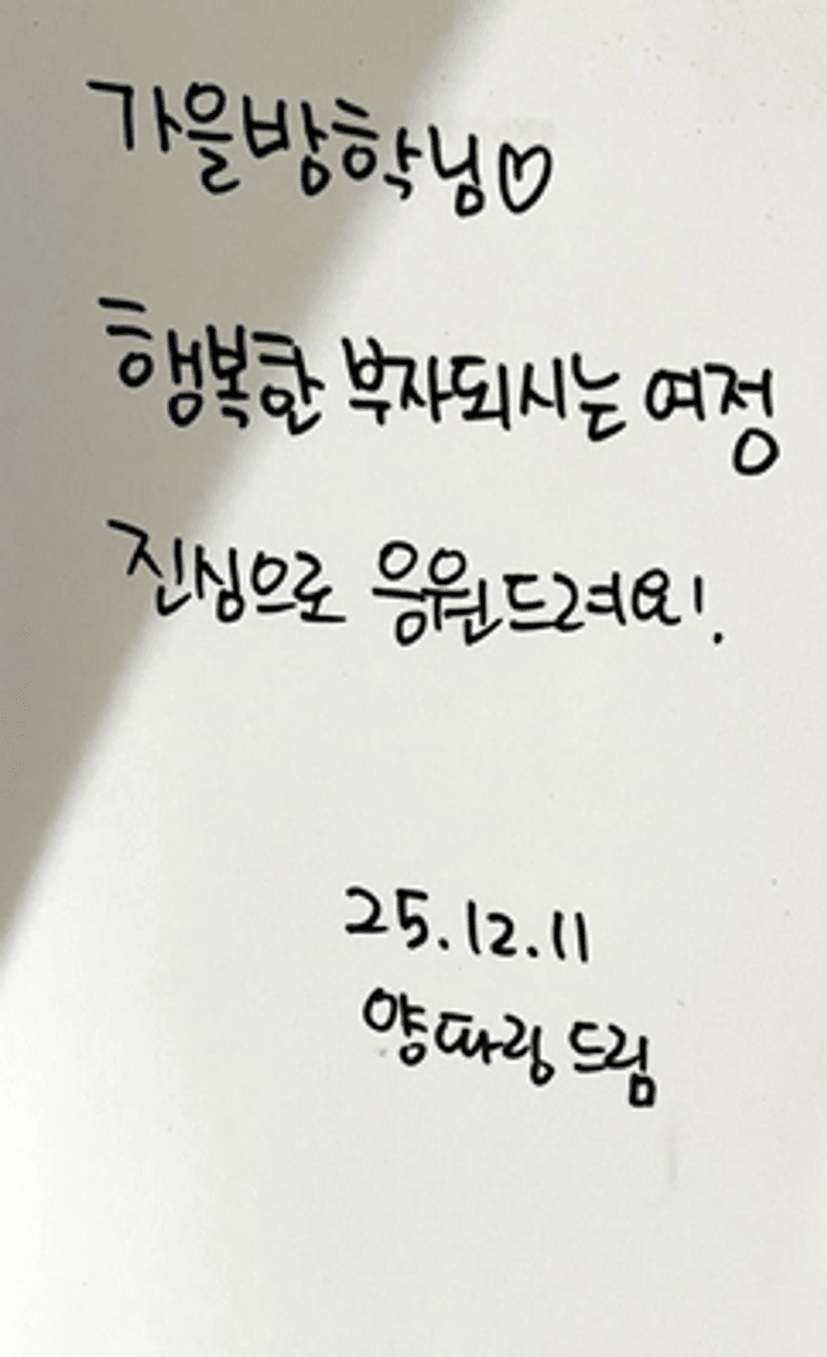 가을방학님♡
행복한 부자되시는 여정
진심으로 응원드려요!.
25.12.11
양파링 드림